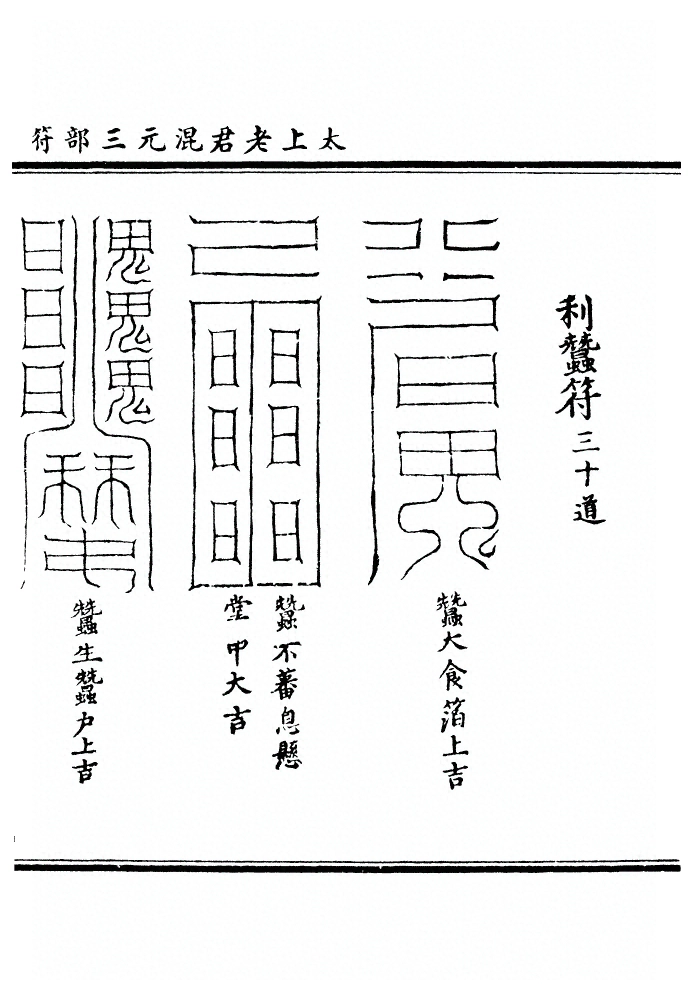 太上老君混元三部符
利蠶符三十道
蠶大食箔上吉
蠶不蕃息懸
堂甲大吉
蠶生蠶户上吉